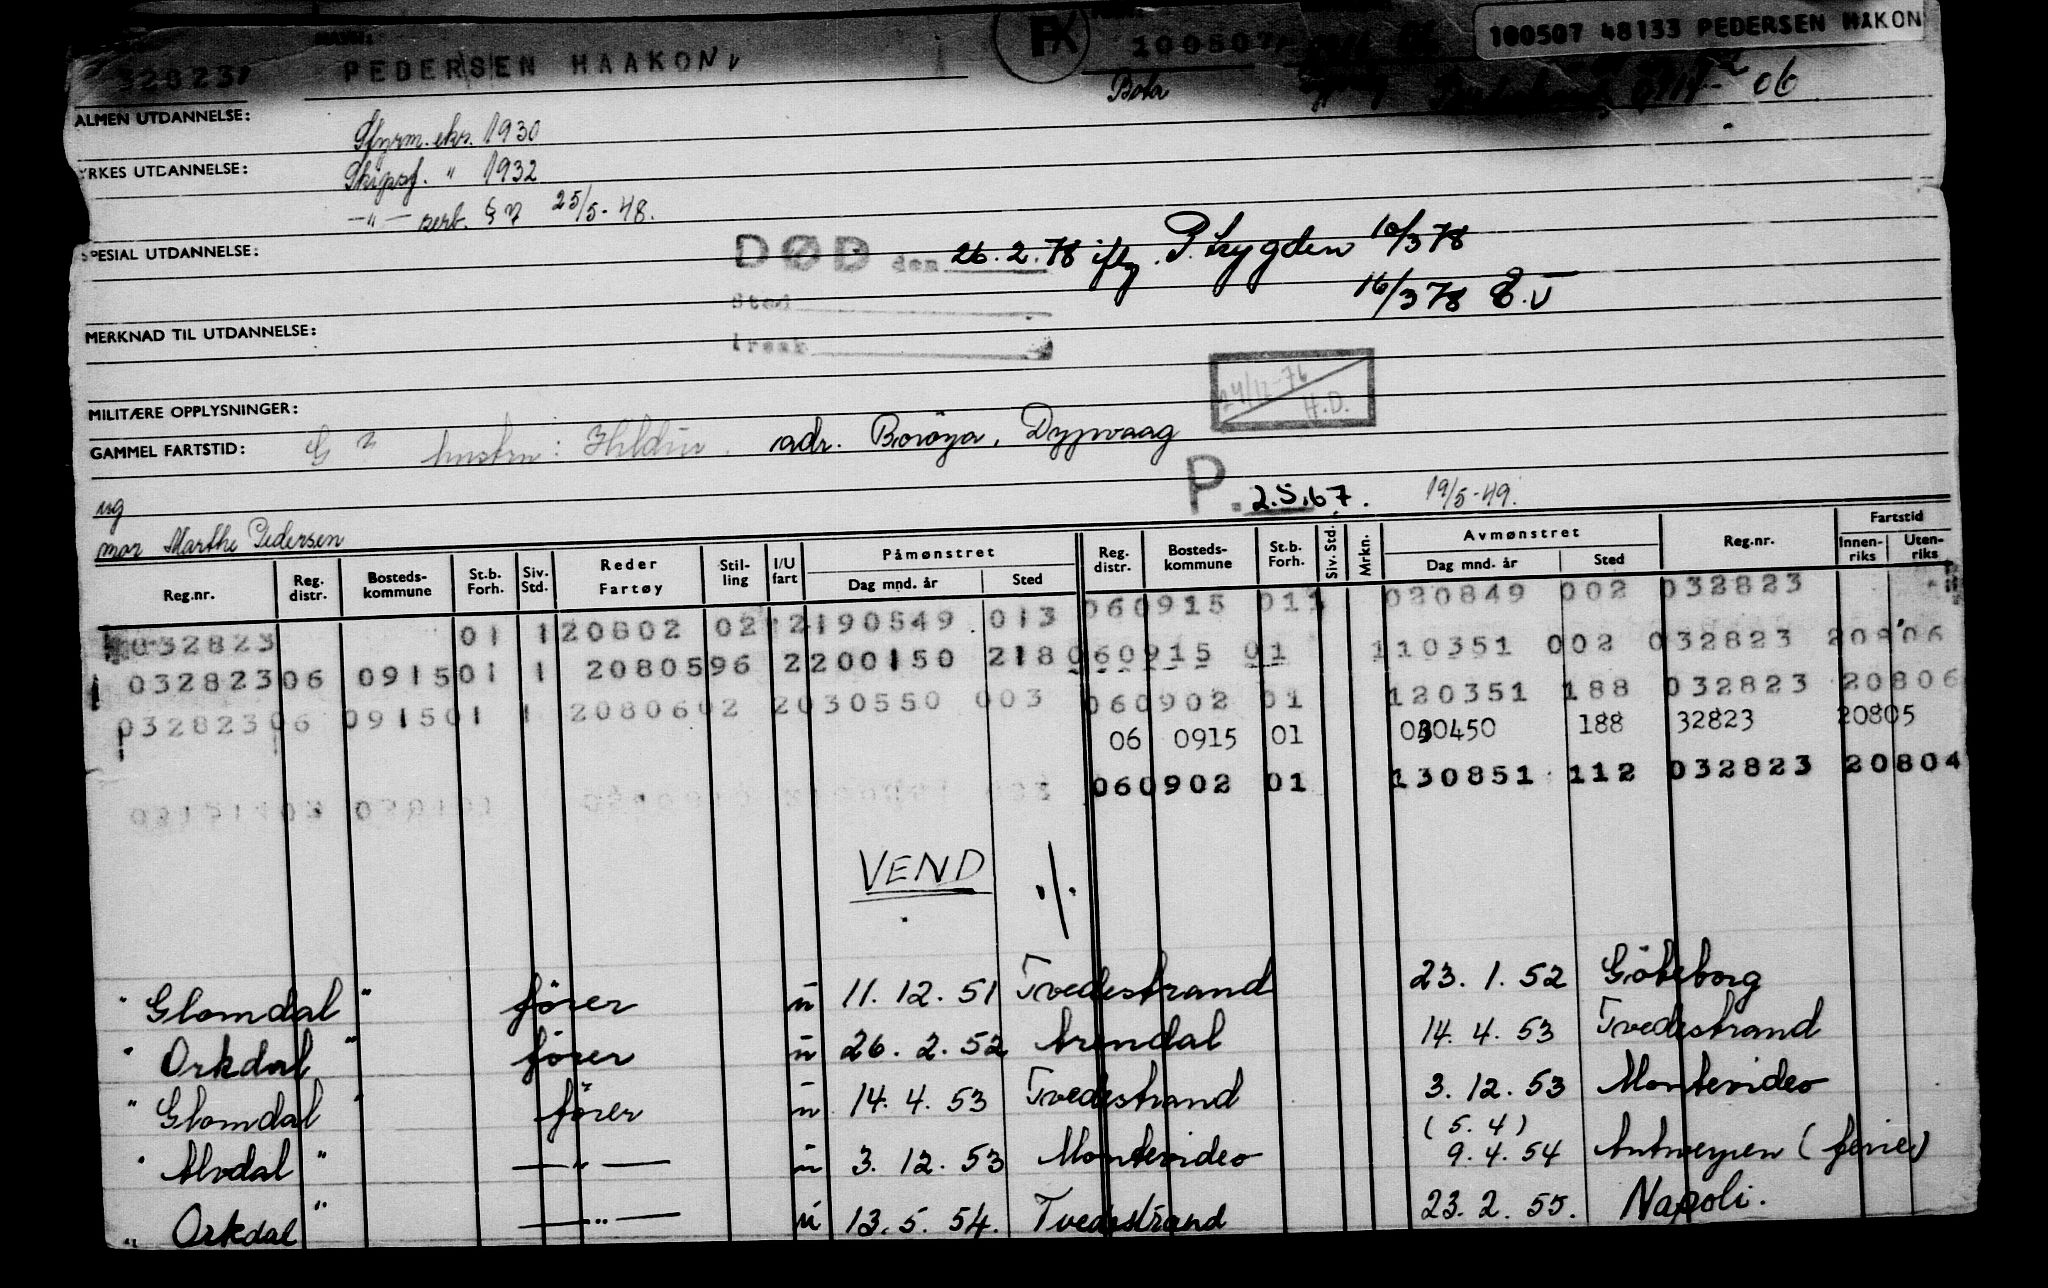 100507 48133 PEDERSEN HAKON
32823 PEDERSEN HAAKON FX 100507 06
ALMEN UTDANNELSE:
Styrm. eks. 1930
YRKES UTDANNELSE:
Skipsf. " 1932
—"— sert. § 7 25/5-48.
SPESIAL UTDANNELSE:
DØD den 26.2.78 iflg. P. Lygden 10/3 78
Sted 16/3 78
Årsak
MERKNAD TIL UTDANNELSE:
MILITÆRE OPPLYSNINGER:
24/11-76 H.D.
GAMMEL FARTSTID: G hustru: Hildur. adr. Borøya, Dypvaag
P. 2.5.67. 19/5-49.
ug
mor Marthe Pedersen
Reg.nr. Reg. distr. Bosteds-kommune St.b. Forh. Siv. Std. Reder Fartøy Stil-ling I/U fart Påmønstret Dag mnd. år Sted Reg. distr. Bosteds-kommune St.b. Forh. Siv. Std. Mrkn. Avmønstret Dag mnd. år Sted Reg.nr. Fartstid Innen-riks Uten-riks
032823 01 1 20802 02 2 190549 013 060915 011 020849 002 032823
032823 06 0915 01 1 20805 96 2 200150 218 060915 01 110351 002 032823 20806
032823 06 0915 01 1 20806 02 2 030550 003 060902 01 120351 188 032823 20806
06 0915 01 030450 188 32823 20805
060902 01 130851 112 032823 20804
VEND ./.
" Glomdal " fører u 11. 12. 51 Tvedestrand 23. 1. 52 Göteborg
" Orkdal " fører u 26. 2. 52 Arendal 14. 4. 53 Tvedestrand
" Glomdal " fører u 14. 4. 53 Tvedestrand 3. 12. 53 Montevideo
" Alvdal " —"— u 3. 12. 53 Montevideo (5. 4) 9. 4. 54 Antwerpen (ferie)
" Orkdal " —"— u 13. 5. 54. Tvedestrand 23. 2. 55. Napoli.